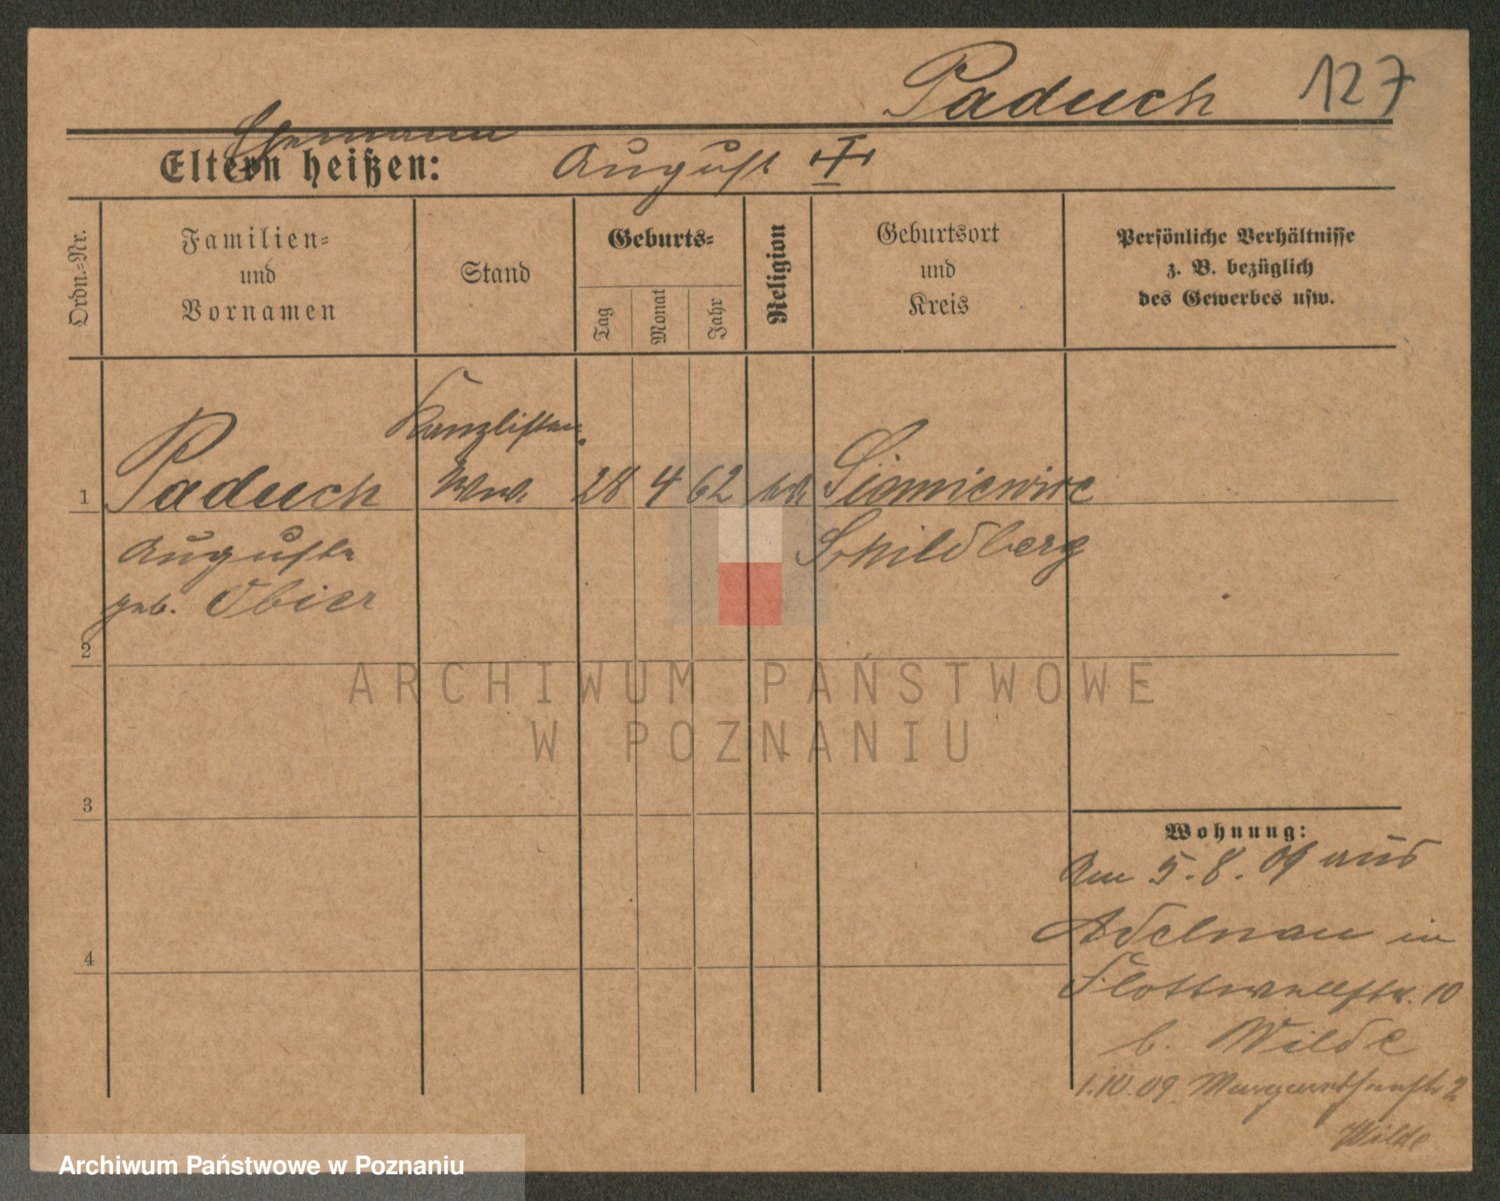 Paduch 127
Ehemann
Eltern heißen: August
Ordn.-Nr.
Familien-
und
Vornamen
Stand
Geburts-
Tag
Monat
Jahr
Religion
Geburtsort
und
Kreis
Persönliche Verhältnisse
z. B. bezüglich
des Gewerbes usw.
Kanzlisten
1 Paduch Wwe. 28 4 62 Sieniewice
Auguste Schildberg
geb. Obier
2
3
4
Wohnung:
Am 5.8.09 aus
Adelnau in
Flottwellstr. 10
b. Wilde
1.10.09 Margarethenstr 2
Wilde
ARCHIWUM PAŃSTWOWE
W POZNANIU
Archiwum Państwowe w Poznaniu